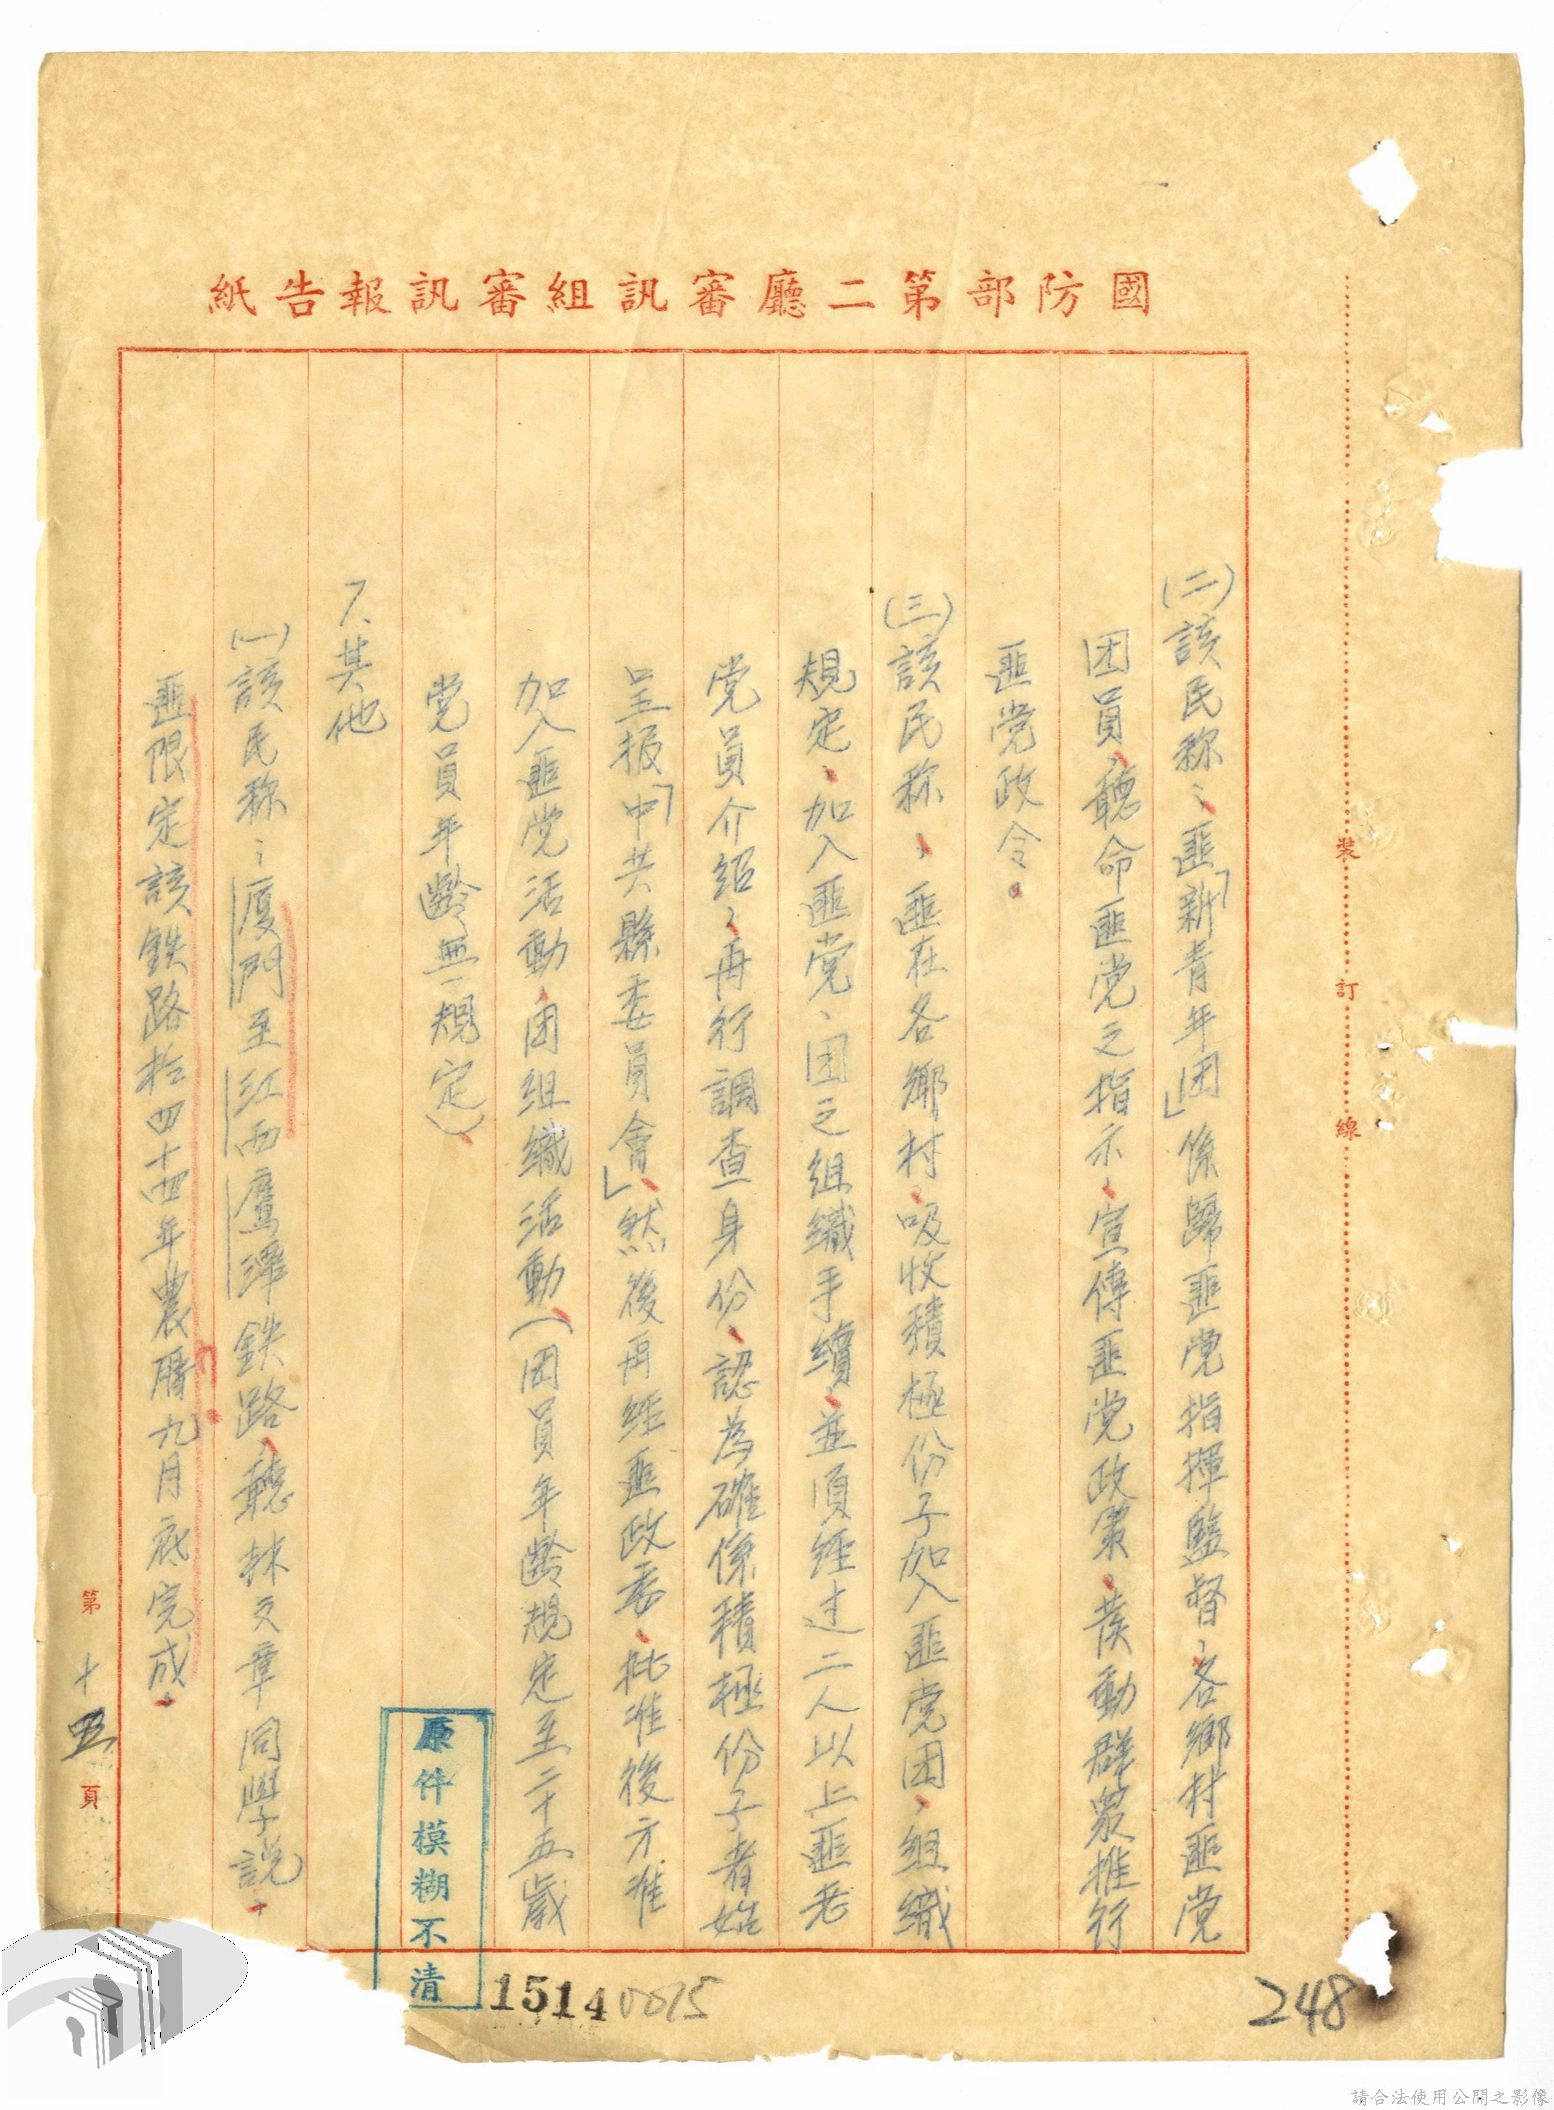 國防部第二廳審訊組審訊報告紙
(二)該民称：匪「新青年团」係歸匪党指揮監督、各鄉村匪党
团員、聽命匪党之指示、宣傳匪党政策、發動群众推行
匪党政令。
(三)該民称：匪在各鄉村、吸收積極份子加入匪党团、組織
規定、加入匪党、团之組織手續、並須經过二人以上匪老
党員介紹、再行調查身份、認為確係積極份子者始
呈报「中共縣委員會」、然後再經匪政委、批准後方准
加入匪党活動、团組織活動（团員年齡規定至二十五歲
党員年齡無規定）、
7.其他
(一)該民称：廈門至江西鷹潭鉄路、聽林文章同學說、
匪限定該鉄路於四十四年農曆九月底完成。
第十五頁
裝訂線
原件模糊不清
1514
0075
248
請合法使用公開之影像